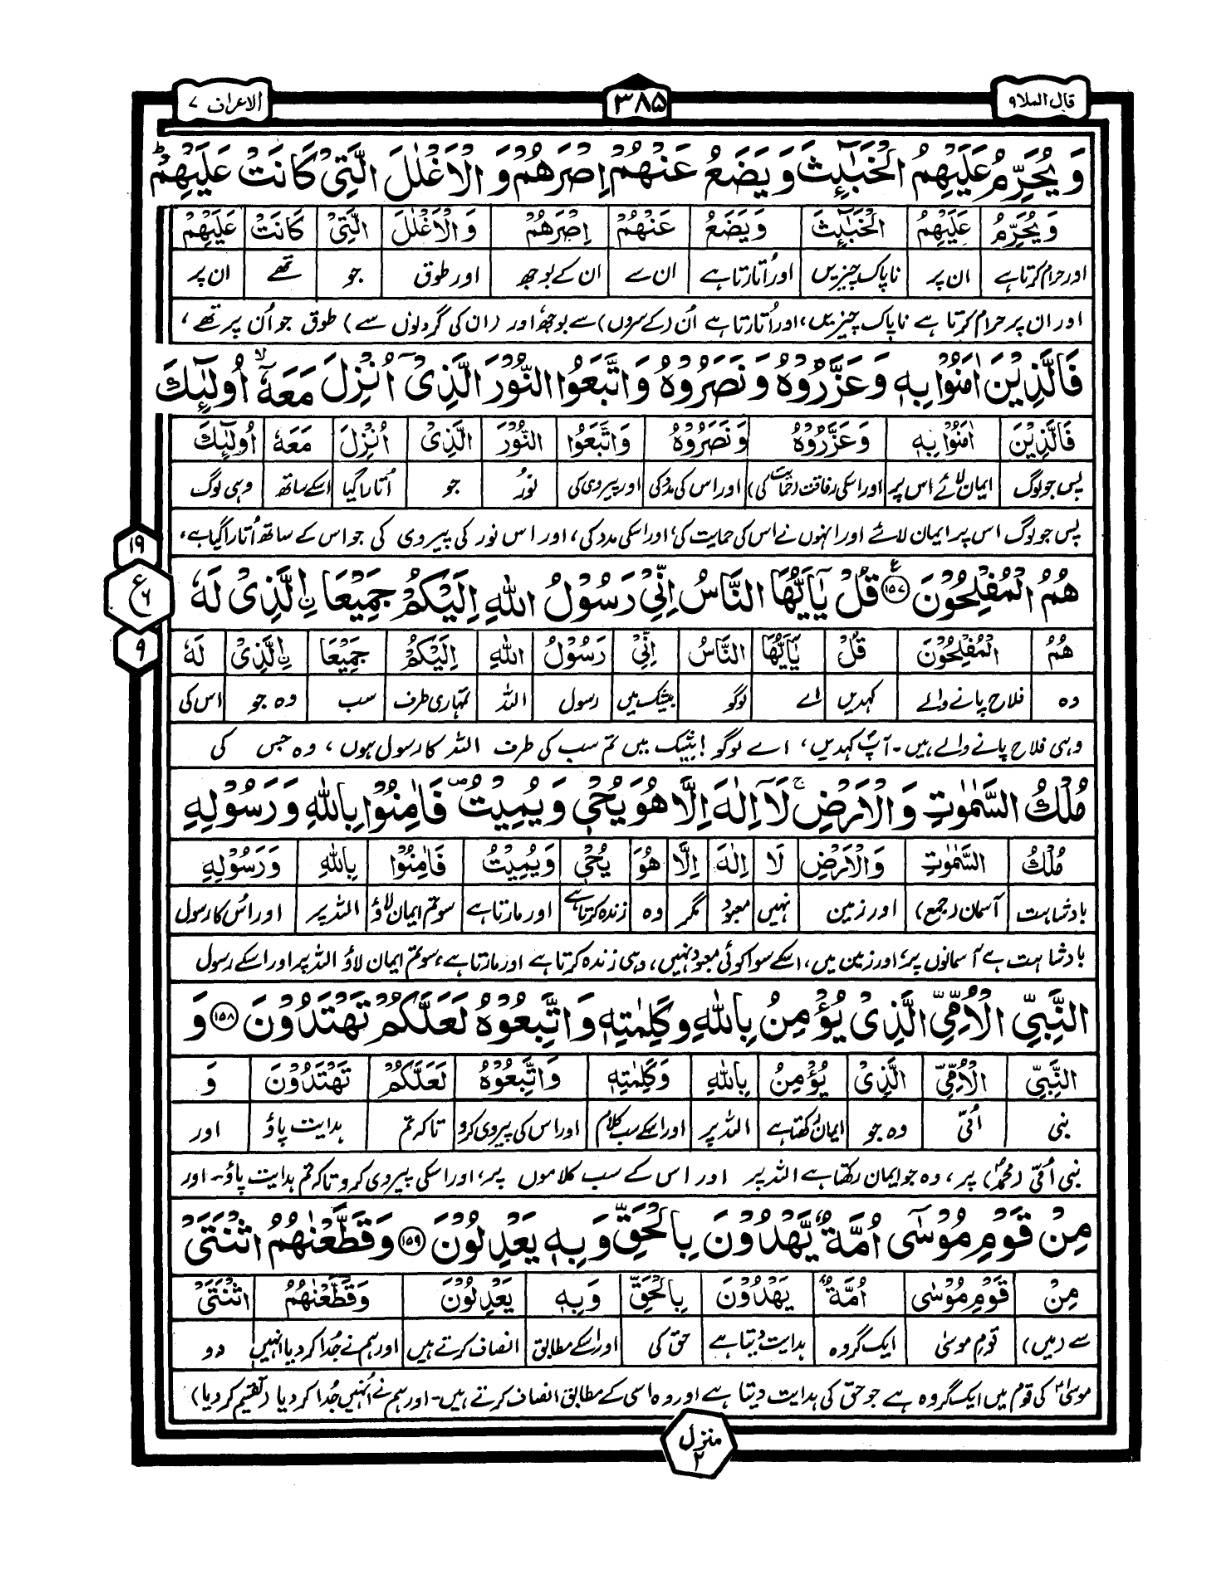 قال الملا ۹
۳۸۵
الاعراف ۷
وَ يُحَرِّمُ عَلَيْهِمُ الْخَبٰٓئِثَ وَ يَضَعُ عَنْهُمْ اِصْرَهُمْ وَ الْاَغْلٰلَ الَّتِیْ كَانَتْ عَلَيْهِمْ ؕ
وَيُحَرِّمُ عَلَيْهِمُ الْخَبٰٓئِثَ وَيَضَعُ عَنْهُمْ اِصْرَهُمْ وَالْاَغْلٰلَ الَّتِیْ كَانَتْ عَلَيْهِمْ
اور حرام کرتا ہے ان پر ناپاک چیزیں اور اُتارتا ہے ان سے ان کے بوجھ اور طوق جو تھے ان پر
اور ان پر حرام کرتا ہے ناپاک چیزیں، اور اُتارتا ہے اُن (کے سروں) سے بوجھ اور (ان کی گردنوں سے) طوق جو اُن پر تھے،
فَالَّذِيْنَ اٰمَنُوْا بِهٖ وَ عَزَّرُوْهُ وَ نَصَرُوْهُ وَ اتَّبَعُوا النُّوْرَ الَّذِیْۤ اُنْزِلَ مَعَهٗۤ ۙ اُولٰٓئِكَ
فَالَّذِيْنَ اٰمَنُوْا بِهٖ وَعَزَّرُوْهُ وَنَصَرُوْهُ وَاتَّبَعُوا النُّوْرَ الَّذِیْ اُنْزِلَ مَعَهٗ اُولٰٓئِكَ
پس جو لوگ ایمان لائے اس پر اور اسکی رفاقت (حمایت کی) اور اس کی مدد کی اور پیروی کی نور جو اُتارا گیا اسکے ساتھ وہی لوگ
پس جو لوگ اس پر ایمان لائے اور انہوں نے اس کی حمایت کی، اور اسکی مدد کی، اور اس نور کی پیروی کی جو اس کے ساتھ اُتارا گیا ہے،
۱۹
ع
۶
۹
هُمُ الْمُفْلِحُوْنَ ۱۵۷ ع قُلْ يٰٓاَيُّهَا النَّاسُ اِنِّیْ رَسُوْلُ اللّٰهِ اِلَيْكُمْ جَمِيْعَا ۨالَّذِیْ لَهٗ
هُمُ الْمُفْلِحُوْنَ قُلْ يٰٓاَيُّهَا النَّاسُ اِنِّیْ رَسُوْلُ اللّٰهِ اِلَيْكُمْ جَمِيْعَا ۨالَّذِیْ لَهٗ
وہ فلاح پانے والے کہدیں اے لوگو بیشک میں رسول اللہ تمہاری طرف سب وہ جو اس کی
وہی فلاح پانے والے ہیں۔ آپؐ کہدیں، اے لوگو! بیشک میں تم سب کی طرف اللہ کا رسول ہوں، وہ جس کی
مُلْكُ السَّمٰوٰتِ وَ الْاَرْضِ ۚ لَاۤ اِلٰهَ اِلَّا هُوَ يُحْیٖ وَ يُمِيْتُ ۪ فَاٰمِنُوْا بِاللّٰهِ وَ رَسُوْلِهِ
مُلْكُ السَّمٰوٰتِ وَالْاَرْضِ لَا اِلٰهَ اِلَّا هُوَ يُحْیٖ وَيُمِيْتُ فَاٰمِنُوْا بِاللّٰهِ وَرَسُوْلِهِ
بادشاہت آسمان (جمع) اور زمین نہیں معبود مگر وہ زندہ کرتا ہے اور مارتا ہے سو تم ایمان لاؤ اللہ پر اور اس کا رسول
بادشاہت ہے آسمانوں پر، اور زمین میں، اسکے سوا کوئی معبود نہیں، وہی زندہ کرتا ہے اور مارتا ہے، سو تم ایمان لاؤ اللہ پر اور اسکے رسول
النَّبِیِّ الْاُمِّیِّ الَّذِیْ يُؤْمِنُ بِاللّٰهِ وَ كَلِمٰتِهٖ وَ اتَّبِعُوْهُ لَعَلَّكُمْ تَهْتَدُوْنَ ۱۵۸ وَ
النَّبِیِّ الْاُمِّیِّ الَّذِیْ يُؤْمِنُ بِاللّٰهِ وَكَلِمٰتِهٖ وَاتَّبِعُوْهُ لَعَلَّكُمْ تَهْتَدُوْنَ وَ
نبی اُمّی وہ جو ایمان رکھتا ہے اللہ پر اور اسکے سب کلام اور اس کی پیروی کرو تاکہ تم ہدایت پاؤ اور
نبی اُمّی (محمدؐ) پر، وہ جو ایمان رکھتا ہے اللہ پر اور اس کے سب کلاموں پر، اور اسکی پیروی کرو تاکہ تم ہدایت پاؤ۔ اور
مِنْ قَوْمِ مُوْسٰۤی اُمَّةٌ يَّهْدُوْنَ بِالْحَقِّ وَ بِهٖ يَعْدِلُوْنَ ۱۵۹ وَ قَطَّعْنٰهُمُ اثْنَتَیْ
مِنْ قَوْمِ مُوْسٰی اُمَّةٌ يَّهْدُوْنَ بِالْحَقِّ وَبِهٖ يَعْدِلُوْنَ وَقَطَّعْنٰهُمُ اثْنَتَیْ
سے (میں) قوم موسیٰ ایک گروہ ہدایت دیتا ہے حق کی اور اسکے مطابق انصاف کرتے ہیں اور ہم نے جدا کر دیا انہیں دو
موسیٰؑ کی قوم میں ایک گروہ ہے جو حق کی ہدایت دیتا ہے اور وہ اسی کے مطابق انصاف کرتے ہیں۔ اور ہم نے اُنہیں جُدا کر دیا (تقسیم کر دیا)
منزل
۲